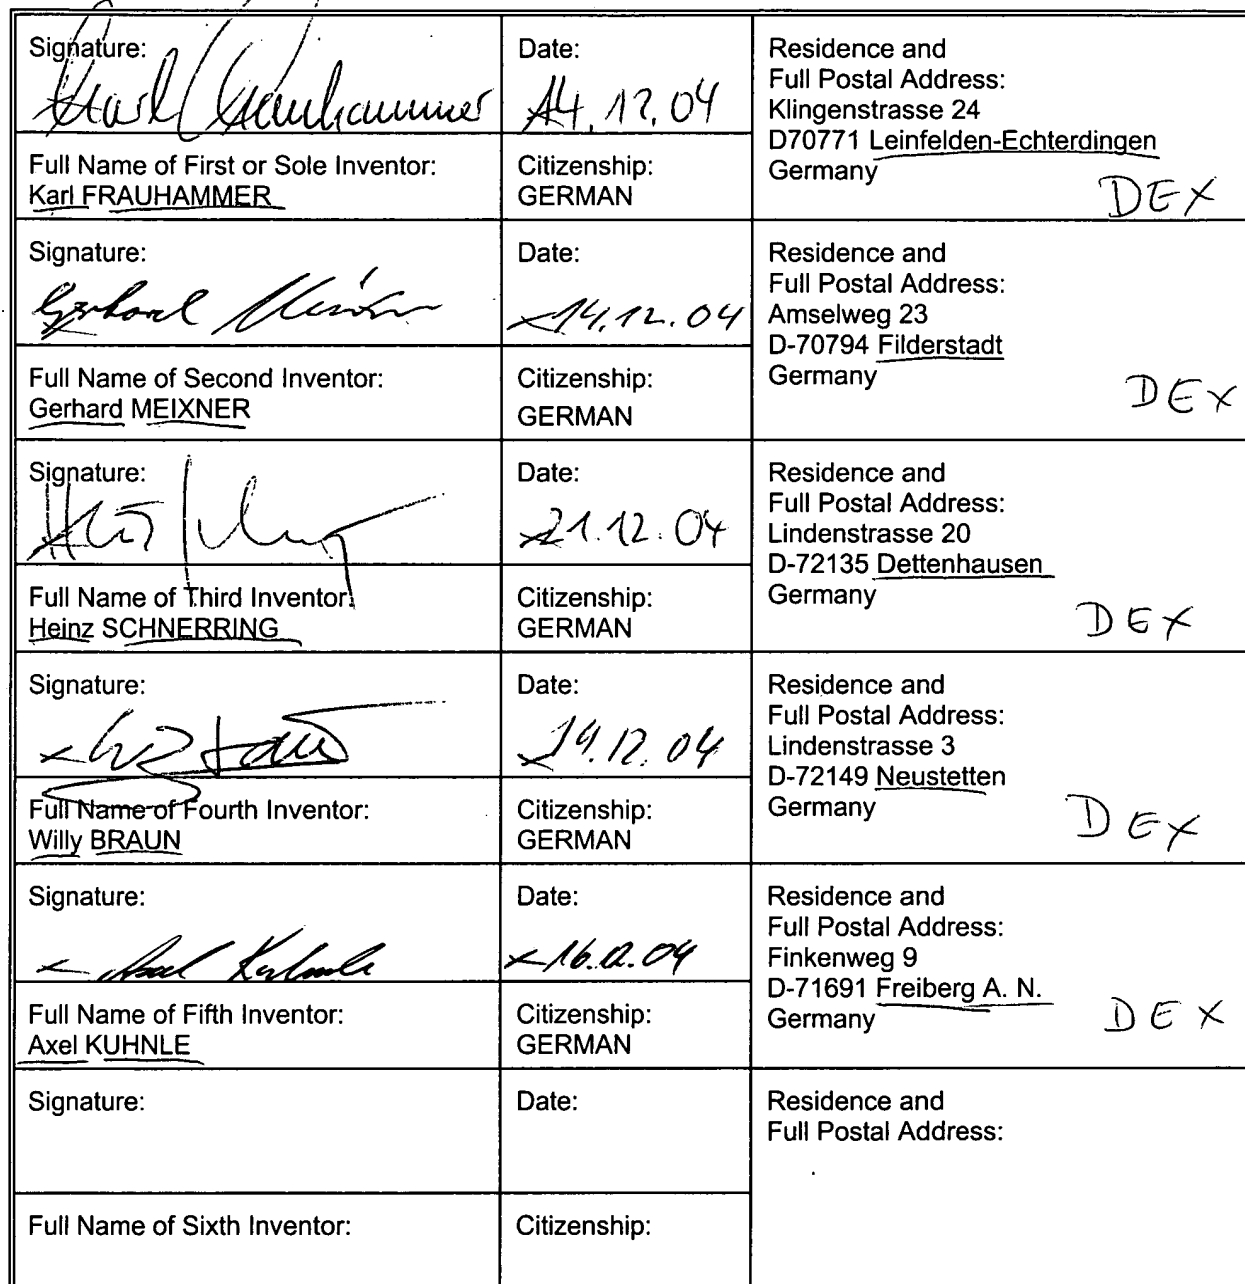 Signature:
Karl Frauhammer
Date:
14.12.04
Residence and
Full Postal Address:
Klingenstrasse 24
D70771 Leinfelden-Echterdingen
Germany
DEX
Full Name of First or Sole Inventor:
Karl FRAUHAMMER
Citizenship:
GERMAN
Signature:
Gerhard Meixner
Date:
14.12.04
Residence and
Full Postal Address:
Amselweg 23
D-70794 Filderstadt
Germany
DEX
Full Name of Second Inventor:
Gerhard MEIXNER
Citizenship:
GERMAN
Signature:
Date:
21.12.04
Residence and
Full Postal Address:
Lindenstrasse 20
D-72135 Dettenhausen
Germany
DEX
Full Name of Third Inventor:
Heinz SCHNERRING
Citizenship:
GERMAN
Signature:
Date:
14.12.04
Residence and
Full Postal Address:
Lindenstrasse 3
D-72149 Neustetten
Germany
DEX
Full Name of Fourth Inventor:
Willy BRAUN
Citizenship:
GERMAN
Signature:
Axel Kuhnle
Date:
16.12.04
Residence and
Full Postal Address:
Finkenweg 9
D-71691 Freiberg A. N.
Germany
DEX
Full Name of Fifth Inventor:
Axel KUHNLE
Citizenship:
GERMAN
Signature:
Date:
Residence and
Full Postal Address:
Full Name of Sixth Inventor:
Citizenship: